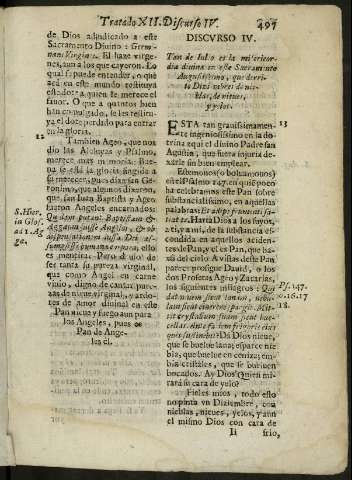 Tratado XII. Discurso IV. 497
de Dios adjudicado a este
Sacramento Divino: Germi-
nans Virgines. El haze virge-
nes, aun a los que cayeron. Lo
qual se puede entender, o que
acà en este mundo restituya
este dote a quien le merece el
favor. O que a quantos bien
han comulgado, se les restitu-
ya el dote perdido para entrar
en la gloria.
12
Tambien Ageo, que nos
dio las Aleluyas y Psalmo,
merece mas memoria. Bue-
na se està la gloria
merecer, pues dizen San Ge-
ronimo, que algunos dixeron,
que Juan Baptista y Ageo
fueron Angeles encarnados:
S. Hier.
in Glos.
ad 1. Ag-
gæ.
Quidam putant Baptistam &
Aggæum fuisse Angelos, & ob
dispensationem iussu Dei as-
sumpsisse humana corpora, ello
es mentira. Pero devio de
ser tanta su pureza virginal,
que como Angel en carne
vivio, digno de cantar pure-
zas de nieve virginal, y ardo-
res de amor divinal en este
Pan nieve y fuego aun para
los Angeles, pues es
Pan de Ange-
les el.
DISCURSO IV.
Tan de lustre es la misericor-
dia divina en este Sacramento
Augustissimo, que derri-
te Dios nubes de nie-
blas, de nieves,
y yelos.
13
ESTA tan gravissimamen-
te ingeniosissimo en la do-
trina aqui el divino Padre san
Agustin, que fuera injuria de-
xarle sin bien emprenderle.
Estemonos (o bolvamonos)
en el Psalmo 147. en que poco
ha celebramos este Pan sobre
substancialissimo, en aquellas
palabras: Et adipe frumenti sa-
tiat te. Harta Dios a los suyos,
a ti, y a mi, de la substancia es-
condida en aquellos acciden-
tes de Pan, y el es Pan, que ba-
xò del cielo. A vistas deste Pan
parece prosigue David, o los
dos Profetas Ageo y Zacarias,
los siguientes milagros: Qui
Ps. 147.
16. 17
18.
dat nivem sicut lanam, nebu-
lam sicut cinerem spargit. Mit-
tit crystallum suum sicut buc-
cellas. Ante faciem frigoris eius
quis sustinebit? Dà Dios nieve,
que se buelve lana; esparce nie-
bla, que buelve en ceniza; em-
bia cristales, que se buelven
bocados. Ay Dios! Quien mi-
rarà su cara de yelo?
Fieles mios, todo esto
nos pinta un Diziembre, con
nieblas, nieves, yelos, y aun
el mismo Dios con cara de
Ii frio,